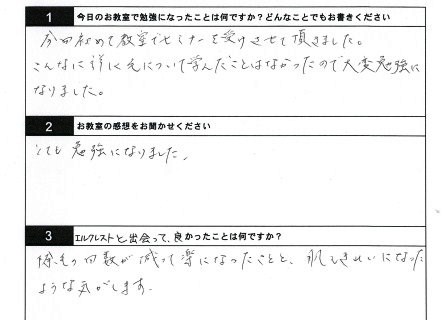 1 今日のお教室で勉強になったことは何ですか？どんなことでもお書きください
今回初めて教室でセミナーを受けさせて頂きました。
こんなに詳しく毛について学んだことはなかったので大変勉強に
なりました。
2 お教室の感想をお聞かせください
とても勉強になりました。
3 エルクレストと出会って、良かったことは何ですか？
除毛の回数が減って楽になったことと、肌もきれいになった
ような気がします。